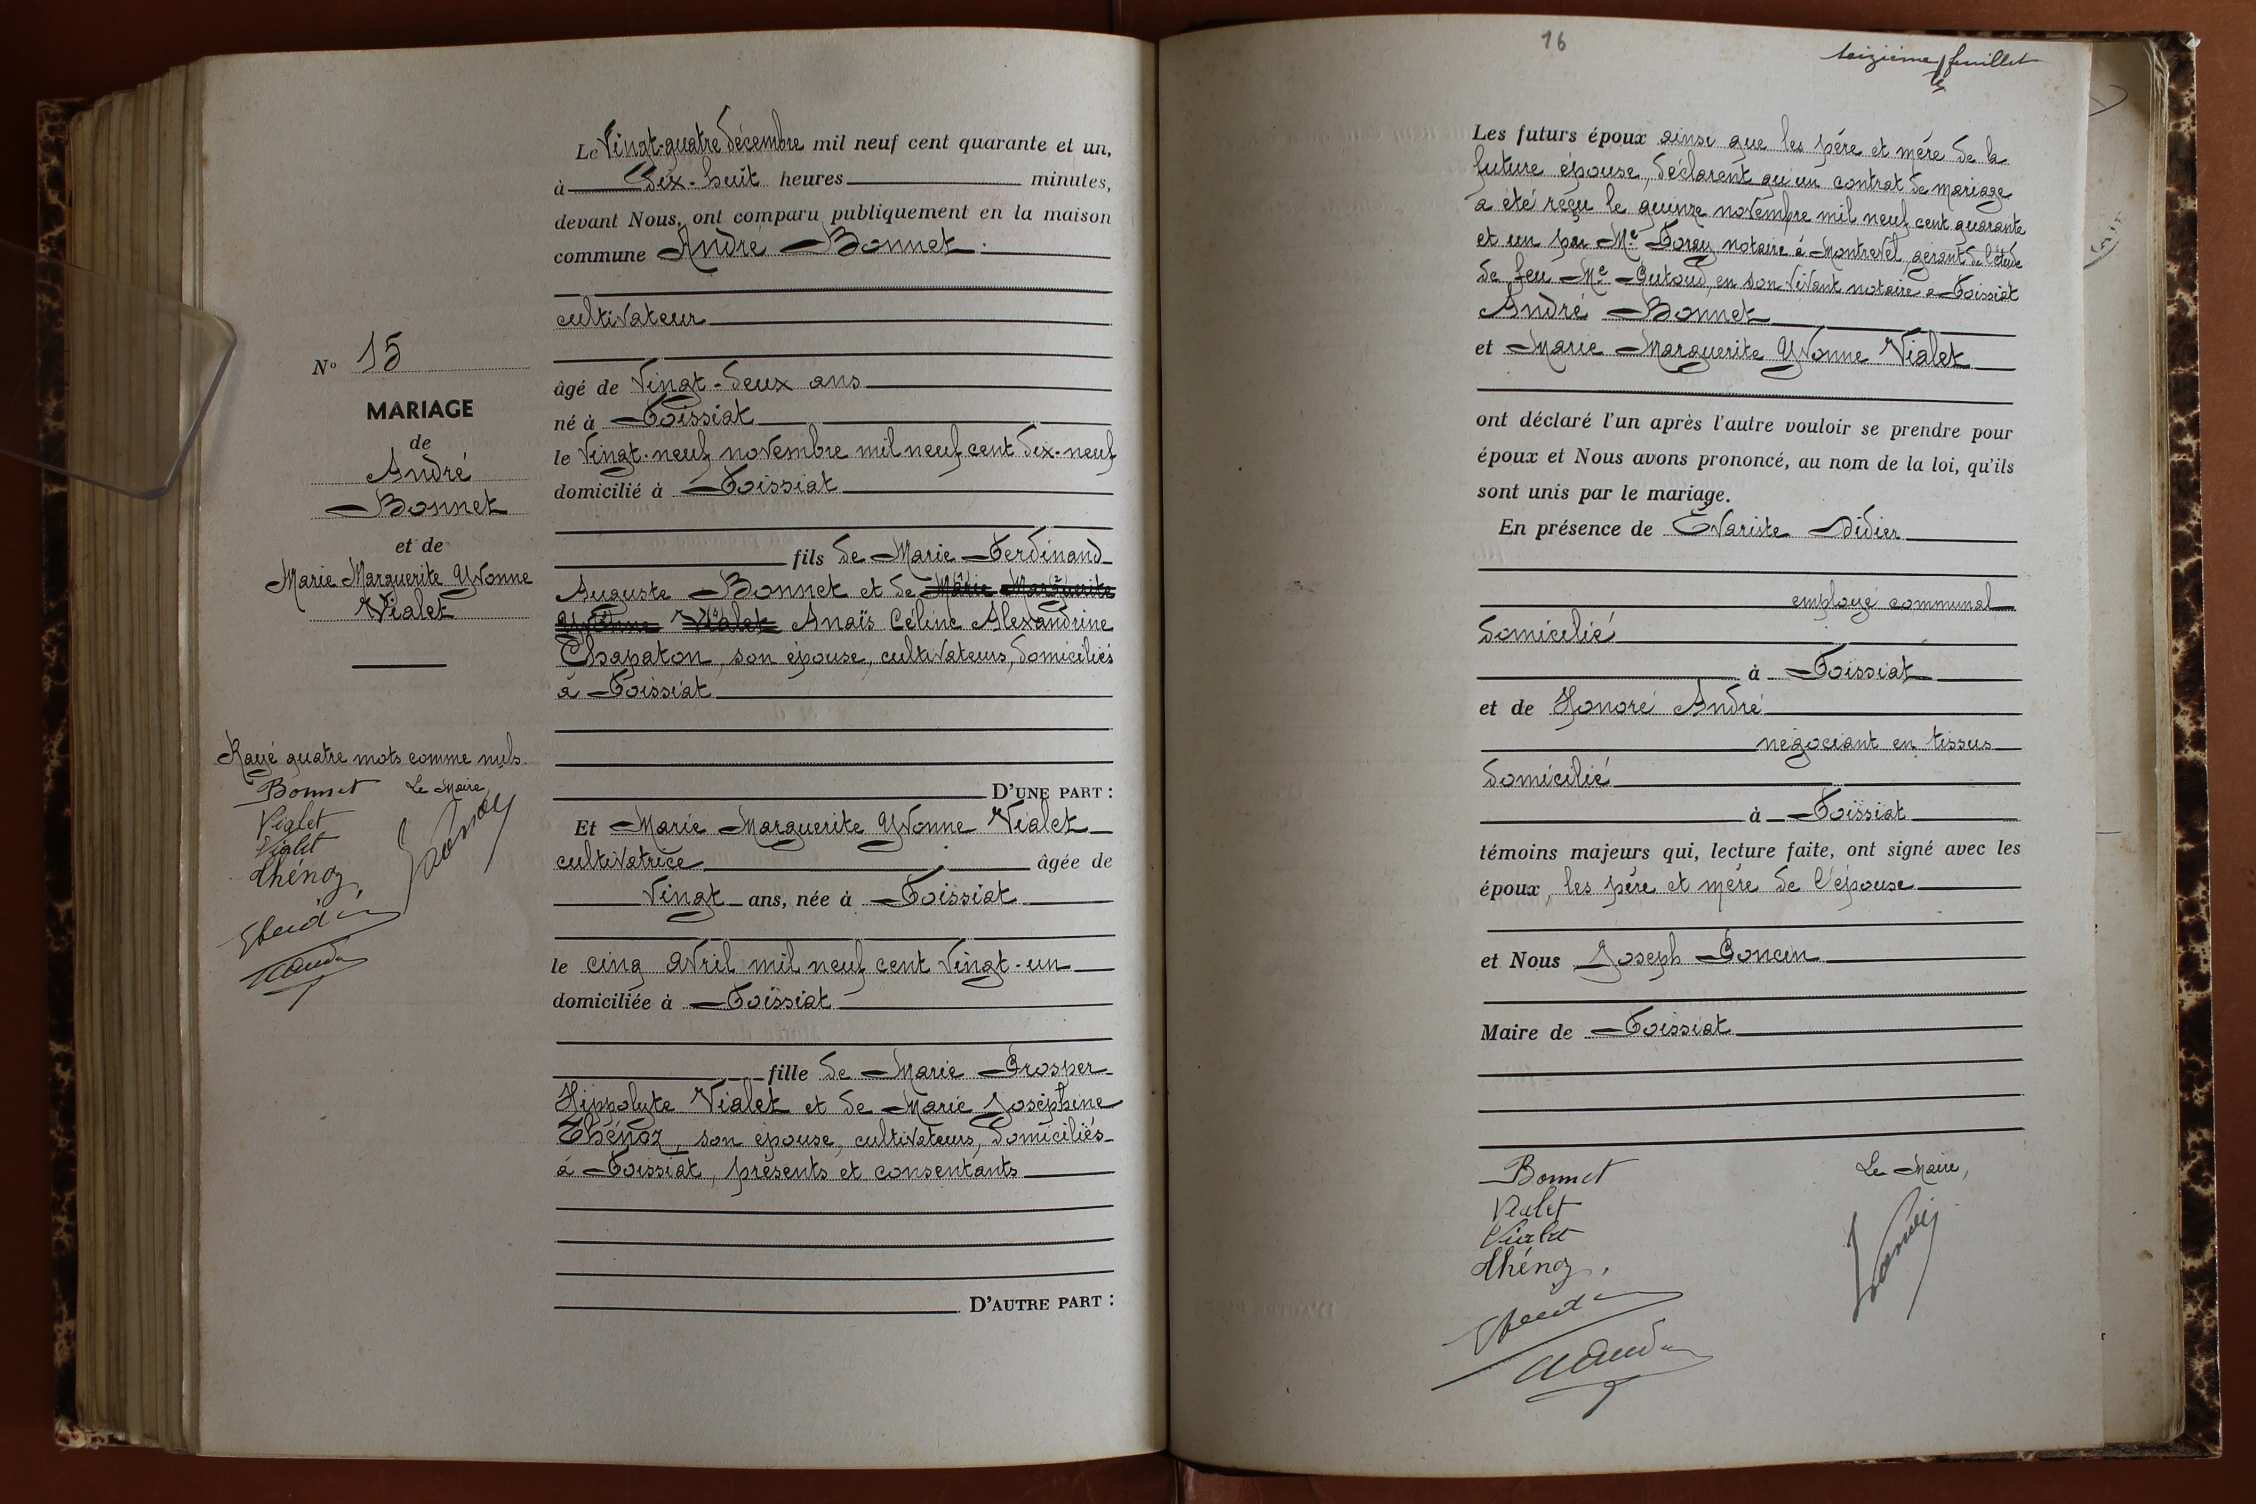 Le Vingt-quatre décembre mil neuf cent quarante et un,
à dix-huit heures minutes,
devant Nous, ont comparu publiquement en la maison
commune André Bonnet
cultivateur
âgé de Vingt-deux ans
né à Foissiat
le Vingt-neuf novembre mil neuf cent dix-neuf
domicilié à Foissiat
fils de Marie Ferdinand
Auguste Bonnet et de Marie Marguerite
Yvonne Vialet Anaïs Céline Alexandrine
Chapaton, son épouse, cultivateurs, domiciliés
à Foissiat
D'UNE PART :
Et Marie Marguerite Yvonne Vialet
cultivatrice âgée de
Vingt ans, née à Foissiat
le cinq avril mil neuf cent Vingt-un
domiciliée à Foissiat
fille de Marie Prosper
Hippolyte Vialet et de Marie Joséphine
Thénoz, son épouse, cultivateurs, domiciliés
à Foissiat, présents et consentants
D'AUTRE PART :
N° 15
MARIAGE
de
André
Bonnet
et de
Marie Marguerite Yvonne
Vialet
Rayé quatre mots comme nuls.
Bonnet Le Maire
Vialet
Vialet
Thénoz,
16
seizième feuillet
Les futurs époux ainsi que les père et mère de la
future épouse, déclarent qu'un contrat de mariage
a été reçu le quinze novembre mil neuf cent quarante
et un par Me notaire à Montrevel, gérant de l'étude
de feu Me en son vivant notaire à Foissiat
André Bonnet
et Marie Marguerite Yvonne Vialet
ont déclaré l'un après l'autre vouloir se prendre pour
époux et Nous avons prononcé, au nom de la loi, qu'ils
sont unis par le mariage.
En présence de Evariste Didier
employé communal
domicilié
à Foissiat
et de Honoré André
négociant en tissus
domicilié
à Foissiat
témoins majeurs qui, lecture faite, ont signé avec les
époux, les père et mère de l'épouse
et Nous Joseph Poncin
Maire de Foissiat
Bonnet Le Maire,
Vialet
Vialet
Thénoz,